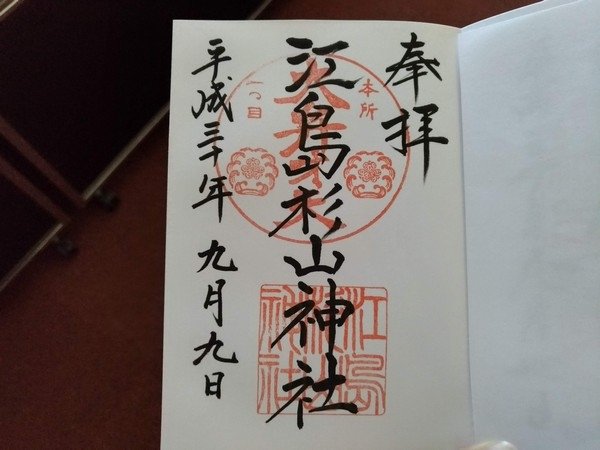 奉拝
本所
江島杉山神社
一つ目
江島
神社
平成三十年九月九日